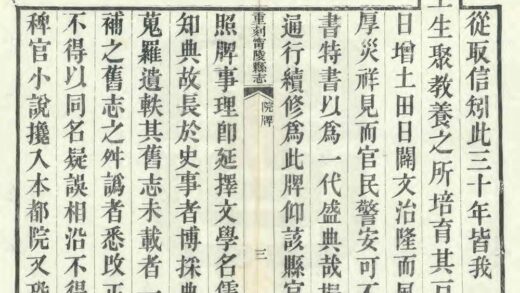 從取信矧此三十年皆我
上生聚教養之所培育其戸
日增土田日闢文治隆而風
厚災祥見而官民警安可不
書特書以為一代盛典哉擬
通行續修為此牌仰該縣官
重刻寗陵縣志 院牌 三
照牌事理卽延擇文學名儒
知典故長於史事者博採典
蒐羅遺軼其舊志未載者一
補之舊志之舛譌者悉改正
不得以同名疑誤相沿不得
稗官小說攙入本都院又